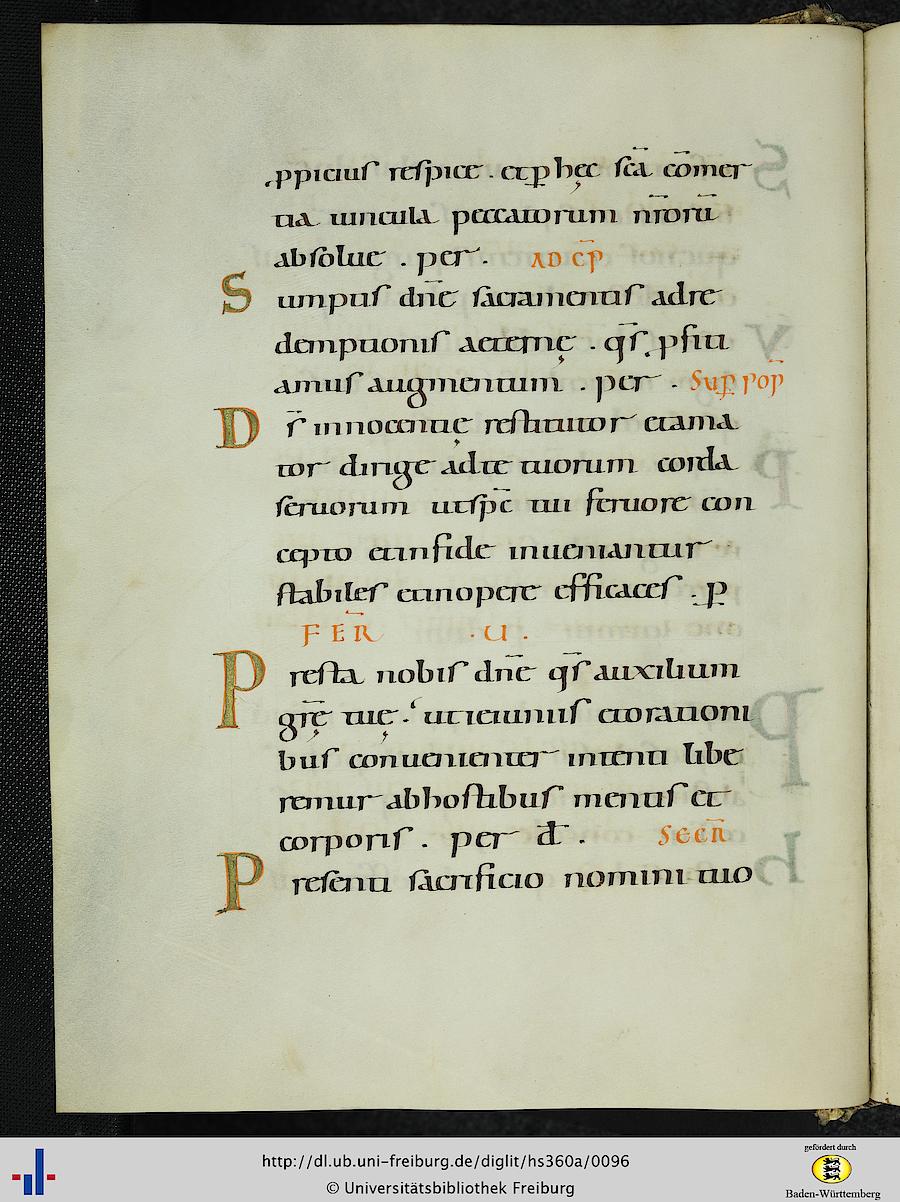 ꝓpicius respice . et ꝑ hęc sc̄a com̄er
tia uincula peccatorum nr̄orū
absolue . per . AD CP̄
Sumptis dn̄e sacramentis ad re
demptionis aeternę . qs̄ ꝓfiti
amus augmentum . per . SUꝐ POP̄
Ds̄ innocentię restitutor et ama
tor dirige ad te tuorum corda
seruorum ut sp̄c tui feruore con
cepto et in fide inueniantur
stabiles et in opere efficaces . ꝑ
FER̄ . U .
Presta nobis dn̄e qs̄ auxilium
grę̄ tuę . ut ieiuniis et orationi
bus conuenienter intenti libe
remur ab hostibus mentis et
corporis . per đ . SECR̄
Presenti sacrificio nomini tuo
http://dl.ub.uni-freiburg.de/diglit/hs360a/0096
© Universitätsbibliothek Freiburg
gefördert durch
Baden-Württemberg